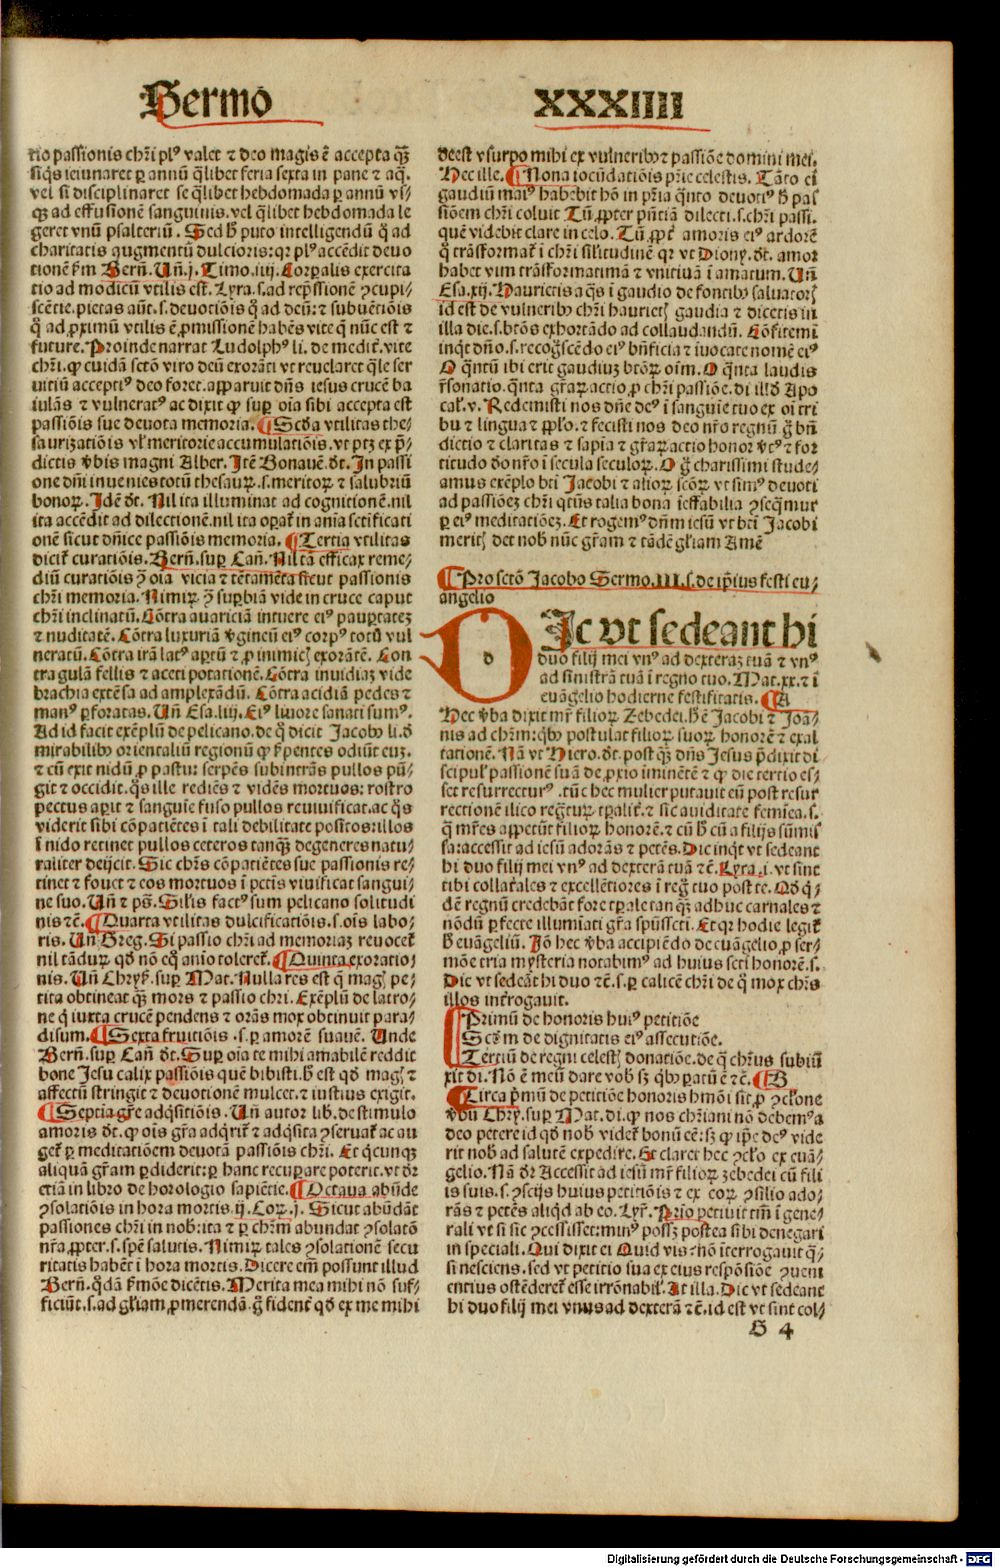 Sermo
XXXIIII
tio passionis chri plꝰ valet ⁊ deo magis ē accepta q̄ꝫ
siq̄s ieiunaret ꝑ annū q̄libet feria sexta in pane ⁊ aq̄.
vel si disciplinaret se q̄libet hebdomada ꝑ annū vs/
qꝫ ad effusionē sanguinis. vel q̄libet hebdomada le
geret vnū psalteriū. Sed ħ puto intelligendū ꝙ ad
charitatis augmentū dulcioris: qr plꝰ accēdit deuo
tionē ẜm Bern̄. Un̄. j. Timo. iiij. Corꝑalis exercita
tio ad modicū vtilis est. Lyra. s. ad rep̄ssionē ꝯcupi/
scētie. pietas aūt. s. deuotiōis q̄ ad deū: ⁊ subuētiōis
q̄ ad ꝓximū vtilis ē ꝓmissionē habēs vite q̄ nūc est ⁊
future. Proinde narrat Ludolphꝰ li. de medit̄. vite
chri. ꝙ cuidā sctō viro deū exorāti vt reuelaret q̄le ser
uitiū acceptiꝰ deo foret. apparuit dn̄s iesus crucē ba
iulās ⁊ vulneratꝰ ac dixit ꝙ suꝑ oīa sibi accepta est
passiōis sue deuota memoria. ¶ Scd̄a vtilitas the/
saurizatiōis vl̓ meritorie accumulatiōis. vt ptꝫ ex p̄/
dictis v̓bis magni Alber. Itē Bonauē. dt̄. In passi
one dn̄i inuenies totū thesauꝝ. s. meritoꝝ ⁊ salubriū
bonoꝝ. Idē dt̄. Nil ita illuminat ad cognitionē. nil
ita accēdit ad dilectionē. nil ita oꝑat̄ in aīa sctificati
onē sicut dn̄ice passiōis memoria. ¶ Tertia vtilitas
dicit̄ curatiōis. Bern̄. suꝑ Can̄. Nil tā efficax reme/
diū curatiōis ꝯ̄ oīa vicia ⁊ tētamēta sicut passionis
chri memoria. Nimiꝝ ꝯ̄ suꝑbiā vide in cruce caput
chri inclinatū. Cōtra auariciā intuere eiꝰ pauꝑtatez
⁊ nuditatē. Cōtra luxuriā v̓gineū eiꝰ corpꝰ totū vul
neratū. Cōtra irā latꝰ aꝑtū ⁊ ꝓ inimicꝭ exorātē. Con
tra gulā fellis ⁊ aceti potationē. Cōtra inuidiaꝫ vide
brachia extēsa ad amplexādū. Cōtra acidiā pedes ⁊
manꝰ ꝑforatas. Un̄ Esa. liij. Eiꝰ liuore sanati sumꝰ.
Ad id facit exēplū de pelicano. de q̄ dicit Jacob̓ li. d̓
mirabilibꝰ orientaliū regionū ꝙ ẜpentes odiūt euꝫ.
⁊ cū exit nidū ꝓ pastu: serpēs subintrās pullos pū/
git ⁊ occidit. q̄s ille rediēs ⁊ vidēs mortuos: rostro
pectus aꝑit ⁊ sanguīe fuso pullos reuiuificat. ac q̄s
viderit sibi cōpatiētes ī tali debilitate positos: illos
ī nido retinet pullos ceteros tanqꝫ degeneres natu/
raliter deijcit. Sic chrs cōpatiētes sue passionis re/
tinet ⁊ fouet ⁊ eos mortuos ī pctīs viuificat sangui/
ne suo. Un̄ ⁊ ps̄. Sil̓is factꝰ sum pelicano solitudi
nis ⁊c̄. ¶ Quarta vtilitas dulcificatiōis. s. oīs labo/
ris. Un̄ Greg. Si passio chri ad memoriaꝫ reuocet̄
nil tā duꝝ qd̓ nō eq̄ aīo toleret̄. ¶ Quinta exoratio/
nis. Un̄ Chryſ. suꝑ Mat. Nulla res est q̄ magꝭ pe/
tita obtineat q̄ꝫ mors ⁊ passio chri. Exēplū de latro/
ne q̄ iuxta crucē pendens ⁊ orās mox obtinuit para/
disum. ¶ Sexta fruitiōis. s. ꝑ amorē suauē. Unde
Bern̄. suꝑ Can̄ dt̄. Suꝑ oīa te mihi amabilē reddit
bone Jesu calix passiōis quē bibisti. ħ est qd̓ magꝭ ⁊
affectū stringit ⁊ deuotionē mulcet. ⁊ iustius exigit.
¶ Septīa gr̄e adq̄sitiōis. Un̄ autor lib. de stimulo
amoris dt̄. ꝙ oīs gr̄a adq̄rit̄ ⁊ adq̄sita ꝯseruat̄ ac au
get̄ ꝑ meditatiōem deuotā passiōis chri. Et q̄cunqꝫ
aliquā gr̄am ꝑdiderit: ꝑ hanc recuꝑare poterit. vt dr̄
etiā in libro de horologio sapiētie. ¶ Octaua abūde
ꝯsolatiōis in hora mortis. ij. Cor̄. j. Sicut abūdāt
passiones chri in nob̓: ita ⁊ ꝑ chrm abundat ꝯsolatō
nr̄a. ꝓpter. s. spē salutis. Nimiꝝ tales ꝯsolationē secu
ritatis habēt ī hora mortis. Dicere em̄ possunt illud
Bern̄. q̄dā ẜmōe dicētis. Merita mea mihi nō suf/
ficiūt. s. ad gl̓iam ꝓmerendā. ḡ fidēnt̄ qd̓ ex me mihi
deest vsurpo mihi ex vulneribꝰ ⁊ passiōe domini mei.
Hec ille. ¶ Nona iocūdatiōis pr̄ie celestis. Tāto em̄
gaudiū maiꝰ habebit hō in pr̄ia q̄nto deuotiꝰ ħ pas
siōem chri coluit Tū. ꝓpter pn̄tiā dilecti. s. chri passi.
quē videbit clare in celo. Tū. ꝓpt̄ amoris eiꝰ ardorē
q̄ trāsformat̄ ī chri sil̓itudinē qr vt Diony. dt̄. amor
habet vim trāsformatiuā ⁊ vnitiuā ī amatum. Un̄
Esa. xij. Haurietis aq̄s ī gaudio de fontibꝰ saluatorꝭ
id est de vulneribꝰ chri haurietꝭ gaudia ⁊ dicetis in
illa die. s. btōs exhortādo ad collaudandū. Cōfitemī
inq̄t dn̄o. s. recog̓scēdo eiꝰ bn̄ficia ⁊ īuocate nomē eiꝰ
O q̄ntū ibi erit gaudiuꝫ btōꝝ oīm. O q̄nta laudis
r̄sonatio. q̄nta gr̄aꝝ actio ꝓ chri passiōe. di. ill̓d Apo
cal̓. v. Redemisti nos dn̄e deꝰ ī sanguīe tuo ex oī tri
bu ⁊ lingua ⁊ pp̄lo. ⁊ fecisti nos deo nr̄o regnū. ḡ bn̄
dictio ⁊ claritas ⁊ sapīa ⁊ gr̄aꝝ actio honor v̓tꝰ ⁊ for
titudo deo nr̄o ī secula seculoꝝ. O ḡ charissimi stude/
amus exēplo bt̄i Jacobi ⁊ alioꝝ scōꝝ vt simꝰ deuoti
ad passiōeꝫ chri q̄tūs talia bona īeffabilia ꝯseq̄mur
ꝑ eiꝰ meditatiōeꝫ. Et rogemꝰ dn̄m iesū vt bt̄i Jacobi
meritꝭ det nob̓ nūc gr̄am ⁊ tādē gl̓iam Amē
¶ Pro sctō Jacobo Sermo. III. s. de ip̄ius festi eu/
angelio
DIc vt sedeant hi
duo filij mei vnꝰ ad dexteraꝫ tuā ⁊ vnꝰ
ad sinistrā tuā ī regno tuo. Mat. xx. ⁊ ī
euāgelio hodierne festiuitatis. ¶ A
Hec v̓ba dixit mr̄ filioꝝ Zebedei. hē Jacobi ⁊ Joā/
nis ad chrm: q̄bꝰ postulat filioꝝ suoꝝ honorē ⁊ exal
tationē. Nā vt Hiero. dt̄. postq̄ꝫ dn̄s Jesus p̄dixit di
scipul̓ passionē suā de ꝓxio īminētē ⁊ ꝙ die tertio es/
set resurrecturꝰ. tūc hec mulier putauit eū post resur
rectionē ilico regnatuꝝ tꝑalit̄. ⁊ sic auiditate femīea. s.
q̄ mr̄es appetūt filioꝝ honorē. ⁊ cū ħ cū a filijs sūmis
sa: accessit ad iesū adorās ⁊ petēs. Dic inq̄t vt sedeant
hi duo filij mei vnꝰ ad dexterā tuā ⁊c̄. Lyra. i. vt sint
tibi collat̄ales ⁊ excellētiores ī regno tuo post te. Qd̓ q̄/
dē regnū credebāt fore tꝑale tanqꝫ adhuc carnales ⁊
nōdū ꝑfecte illumīati gr̄a spūssctī. Et qr hodie legit̄
ħ euāgeliū. Iō hec v̓ba accipiēdo de euāgelio. ꝓ ser/
mōe tria mysteria notabimꝰ ad huius sctī honorē. s.
Dic vt sedeāt hi duo ⁊c̄. s. ꝑ calicē chri de q̄ mox chrs
illos int̄rogauit.
Primū de honoris huiꝰ petitiōe
Scd̄m de dignitatis eiꝰ assecutiōe.
Tertiū de regni celestꝭ donatiōe. de q̄ chrus subiū
xit di. Nō ē meū dare vob̓ sꝫ q̄bꝰ paratū ē ⁊c̄. ¶ B
¶ Circa p̄mū de petitiōe honoris hmōi sit. ꝓ ꝯclōne
v̓bū Chry. suꝑ Mat. di. ꝙ nos chriani nō debemꝰ a
deo petere id qd̓ nob̓ videt̄ bonū eē: sꝫ ꝙ ip̄e deꝰ vide
rit nob̓ ad salutē expedire. Et claret hec ꝯclo̓ ex euā/
gelio. Nā dr̄ Accessit ad iesū mr̄ filioꝝ zebedei cū fili
is suis. s. ꝯscijs huius petitiōis ⁊ ex eoꝝ ꝯsilio ado/
rās ⁊ petēs aliqd̓ ab eo. Lyr̄. Prīo petiuit tm̄ ī gene/
rali vt si sic ꝯcessisset: minꝰ possꝫ postea sibi denegari
in speciali. Qui dixit ei Quid vis: nō īterrogauit q̄/
si nesciens. sed vt petitio sua ex eius respōsiōe ꝯueni
entius ostēderet̄ esse irrōnabil̓. At illa. Dic vt sedeant
hi duo filij mei vnus ad dexterā ⁊c̄. id est vt sint col/
G 4
Digitalisierung gefördert durch die Deutsche Forschungsgemeinschaft - DFG